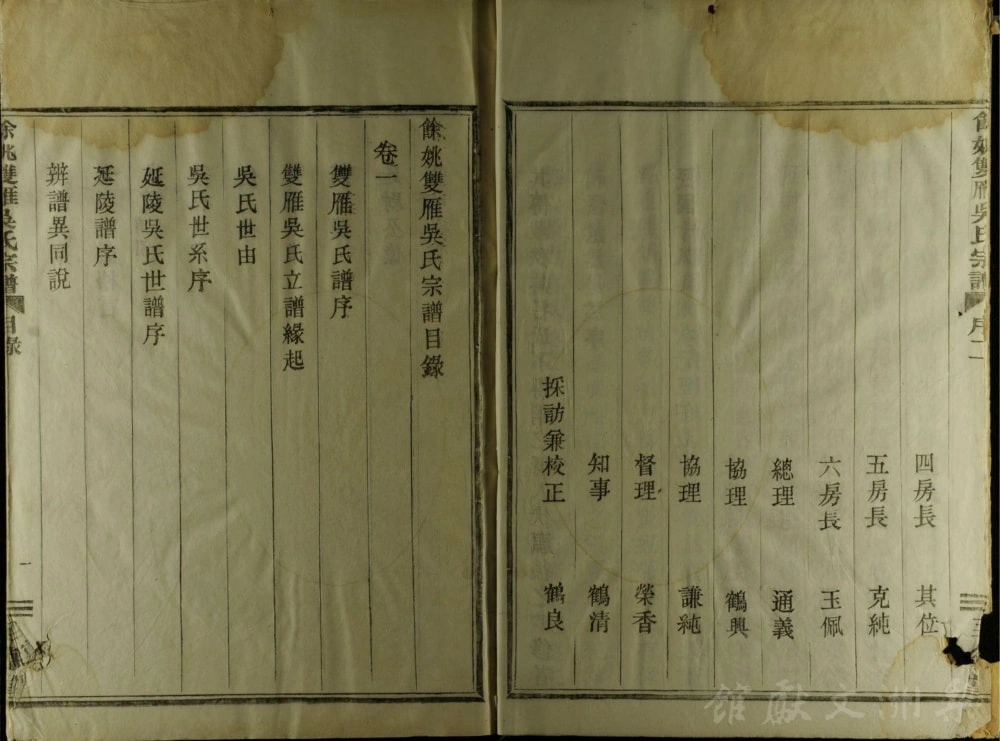 餘姚雙雁吳氏宗譜 序二
四房長 其位
五房長 克純
六房長 玉佩
總理 通義
協理 鶴興
協理 謙純
督理 榮香
知事 鶴清
採訪兼校正 鶴良
餘姚雙雁吳氏宗譜目錄
卷一
雙雁吳氏譜序
雙雁吳氏立譜緣起
吳氏世由
吳氏世系序
延陵吳氏世譜序
延陵譜序
辨譜異同說
餘姚雙雁吳氏宗譜 目錄 一